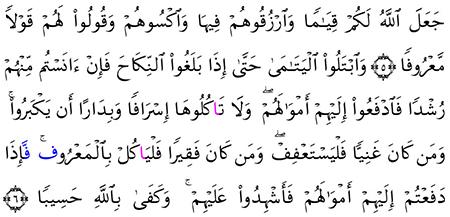 جَعَلَ ٱللَّهُ لَكُمْ قِيَـٰمًا وَٱرْزُقُوهُمْ فِيهَا وَٱكْسُوهُمْ وَقُولُوا۟ لَهُمْ قَوْلًا
مَّعْرُوفًا ۝٥ وَٱبْتَلُوا۟ ٱلْيَتَـٰمَىٰ حَتَّىٰٓ إِذَا بَلَغُوا۟ ٱلنِّكَاحَ فَإِنْ ءَانَسْتُم مِّنْهُمْ
رُشْدًا فَٱدْفَعُوٓا۟ إِلَيْهِمْ أَمْوَٰلَهُمْ ۖ وَلَا تَاكُلُوهَآ إِسْرَافًا وَبِدَارًا أَن يَكْبَرُوا۟ ۚ
وَمَن كَانَ غَنِيًّا فَلْيَسْتَعْفِفْ ۖ وَمَن كَانَ فَقِيرًا فَلْيَاكُلْ بِٱلْمَعْرُوف فَّإِذَا
دَفَعْتُمْ إِلَيْهِمْ أَمْوَٰلَهُمْ فَأَشْهِدُوا۟ عَلَيْهِمْ ۚ وَكَفَىٰ بِٱللَّهِ حَسِيبًا ۝٦